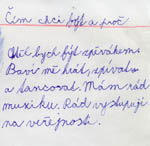 Čím chci být a proč
Chtěl bych být zpěvákem.
Baví mě hrát, zpívat
a tancovat. Mám rád
muziku. Rád vystupuji
na veřejnosti.